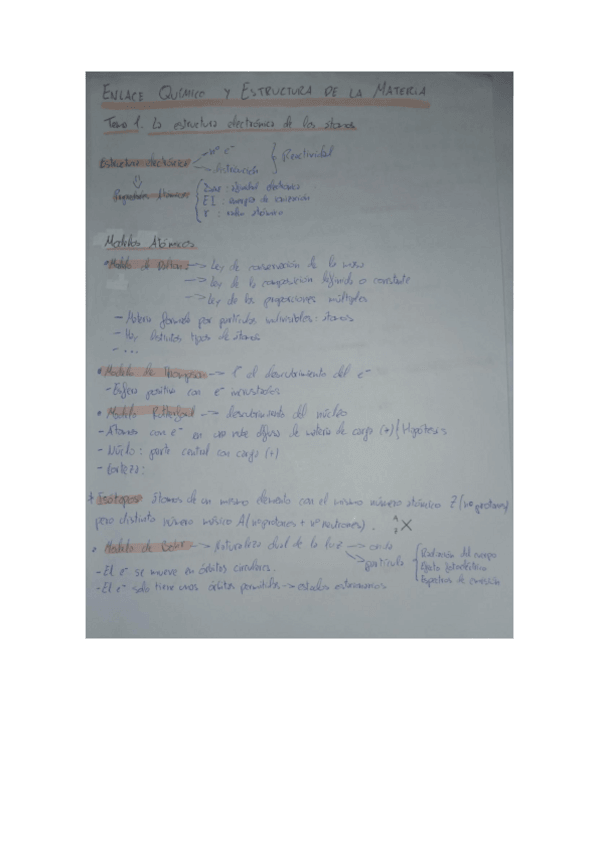 ENLACE QUÍMICO Y ESTRUCTURA DE LA MATERIA
Tema 1. La estructura electrónica de los átomos
Estructura electrónica → nº e⁻
→ distribución } Reactividad
Propiedades Atómicas { Zeff : electrónica
EI : energía de ionización
r : radio atómico
Modelos Atómicos
• Modelo de Dalton: → Ley de conservación de la masa
→ Ley de la composición definida o constante
→ Ley de las proporciones múltiples
- Materia formada por partículas indivisibles: átomos
- Hay distintos tipos de átomos
- ...
• Modelo de Thompson → 1º el descubrimiento del e⁻
- Esfera positiva con e⁻ incrustados
• Modelo Rutherford → descubrimiento del núcleo
- Átomos con e⁻ en una nube difusa de materia de carga (+) { Hipótesis
- Núcleo: parte central con carga (+)
- Corteza:
* Isótopos átomos de un mismo elemento con el mismo número atómico Z (nº protones)
pero distinto número másico A (nº protones + nº neutrones). X
• Modelo de Bohr → Naturaleza dual de la luz → onda
→ partícula { Radiación del cuerpo
Efecto fotoeléctrico
Espectros de emisión
- El e⁻ se mueve en órbitas circulares.
- El e⁻ solo tiene unas órbitas permitidas → estados estacionarios